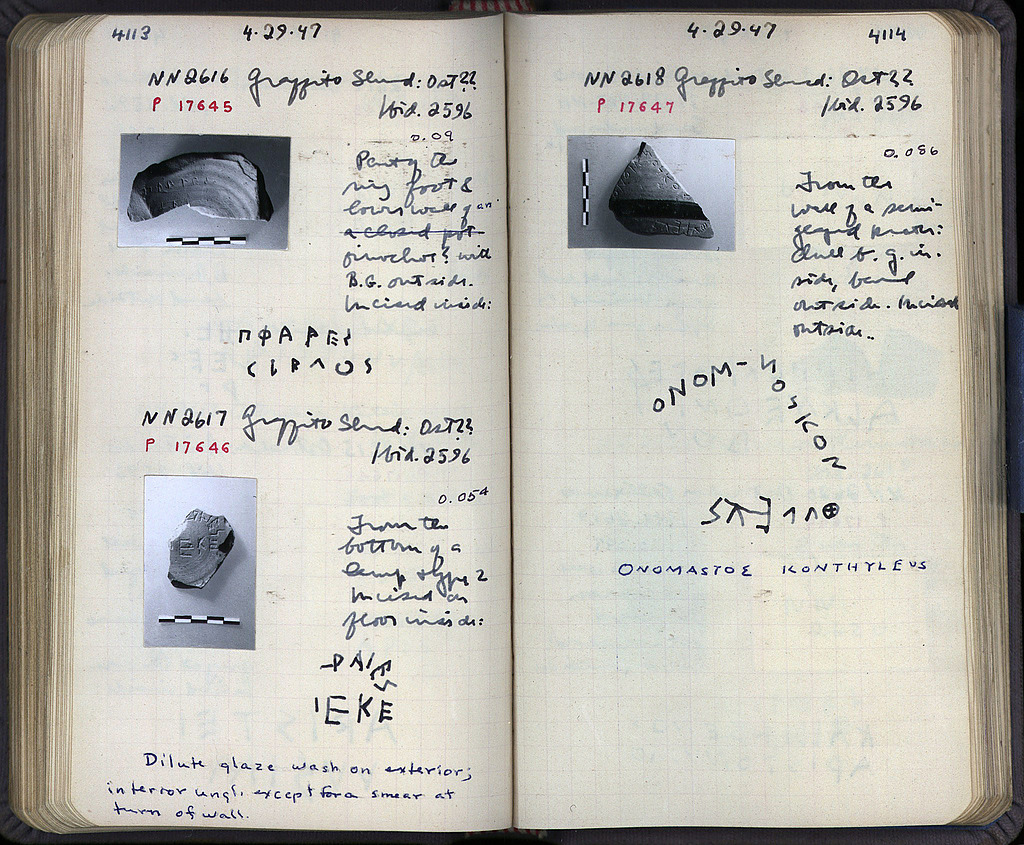 4113 4·29·47
NN 2616 Graffito Sherd: Ost??
P 17645 Ibid. 2596
0.09
Part of the
ring foot &
lower wall of an
a closed pot
oinochoe? with
B.G. outside.
Incised inside:
ΠΦΑΡΕΣ
NN 2617 Graffito Sherd: Ost??
P 17646 Ibid. 2596
0.054
From the
bottom of a
lamp type 2
Incised on
floor inside:
ΙΕΚΕ
Dilute glaze wash on exterior;
interior ungl. except for a smear at
turn of wall.
4·29·47 4114
NN 2618 Graffito Sherd: Ost??
P 17647 Ibid. 2596
0.086
From the
wall of a semi-
glazed krater:
dull b.g. in-
side, band
outside. Incised
outside..
ΟΝΟΜ–
ΟΣΚΟΝ
ONOMASTOΣ KONTHYLEUS